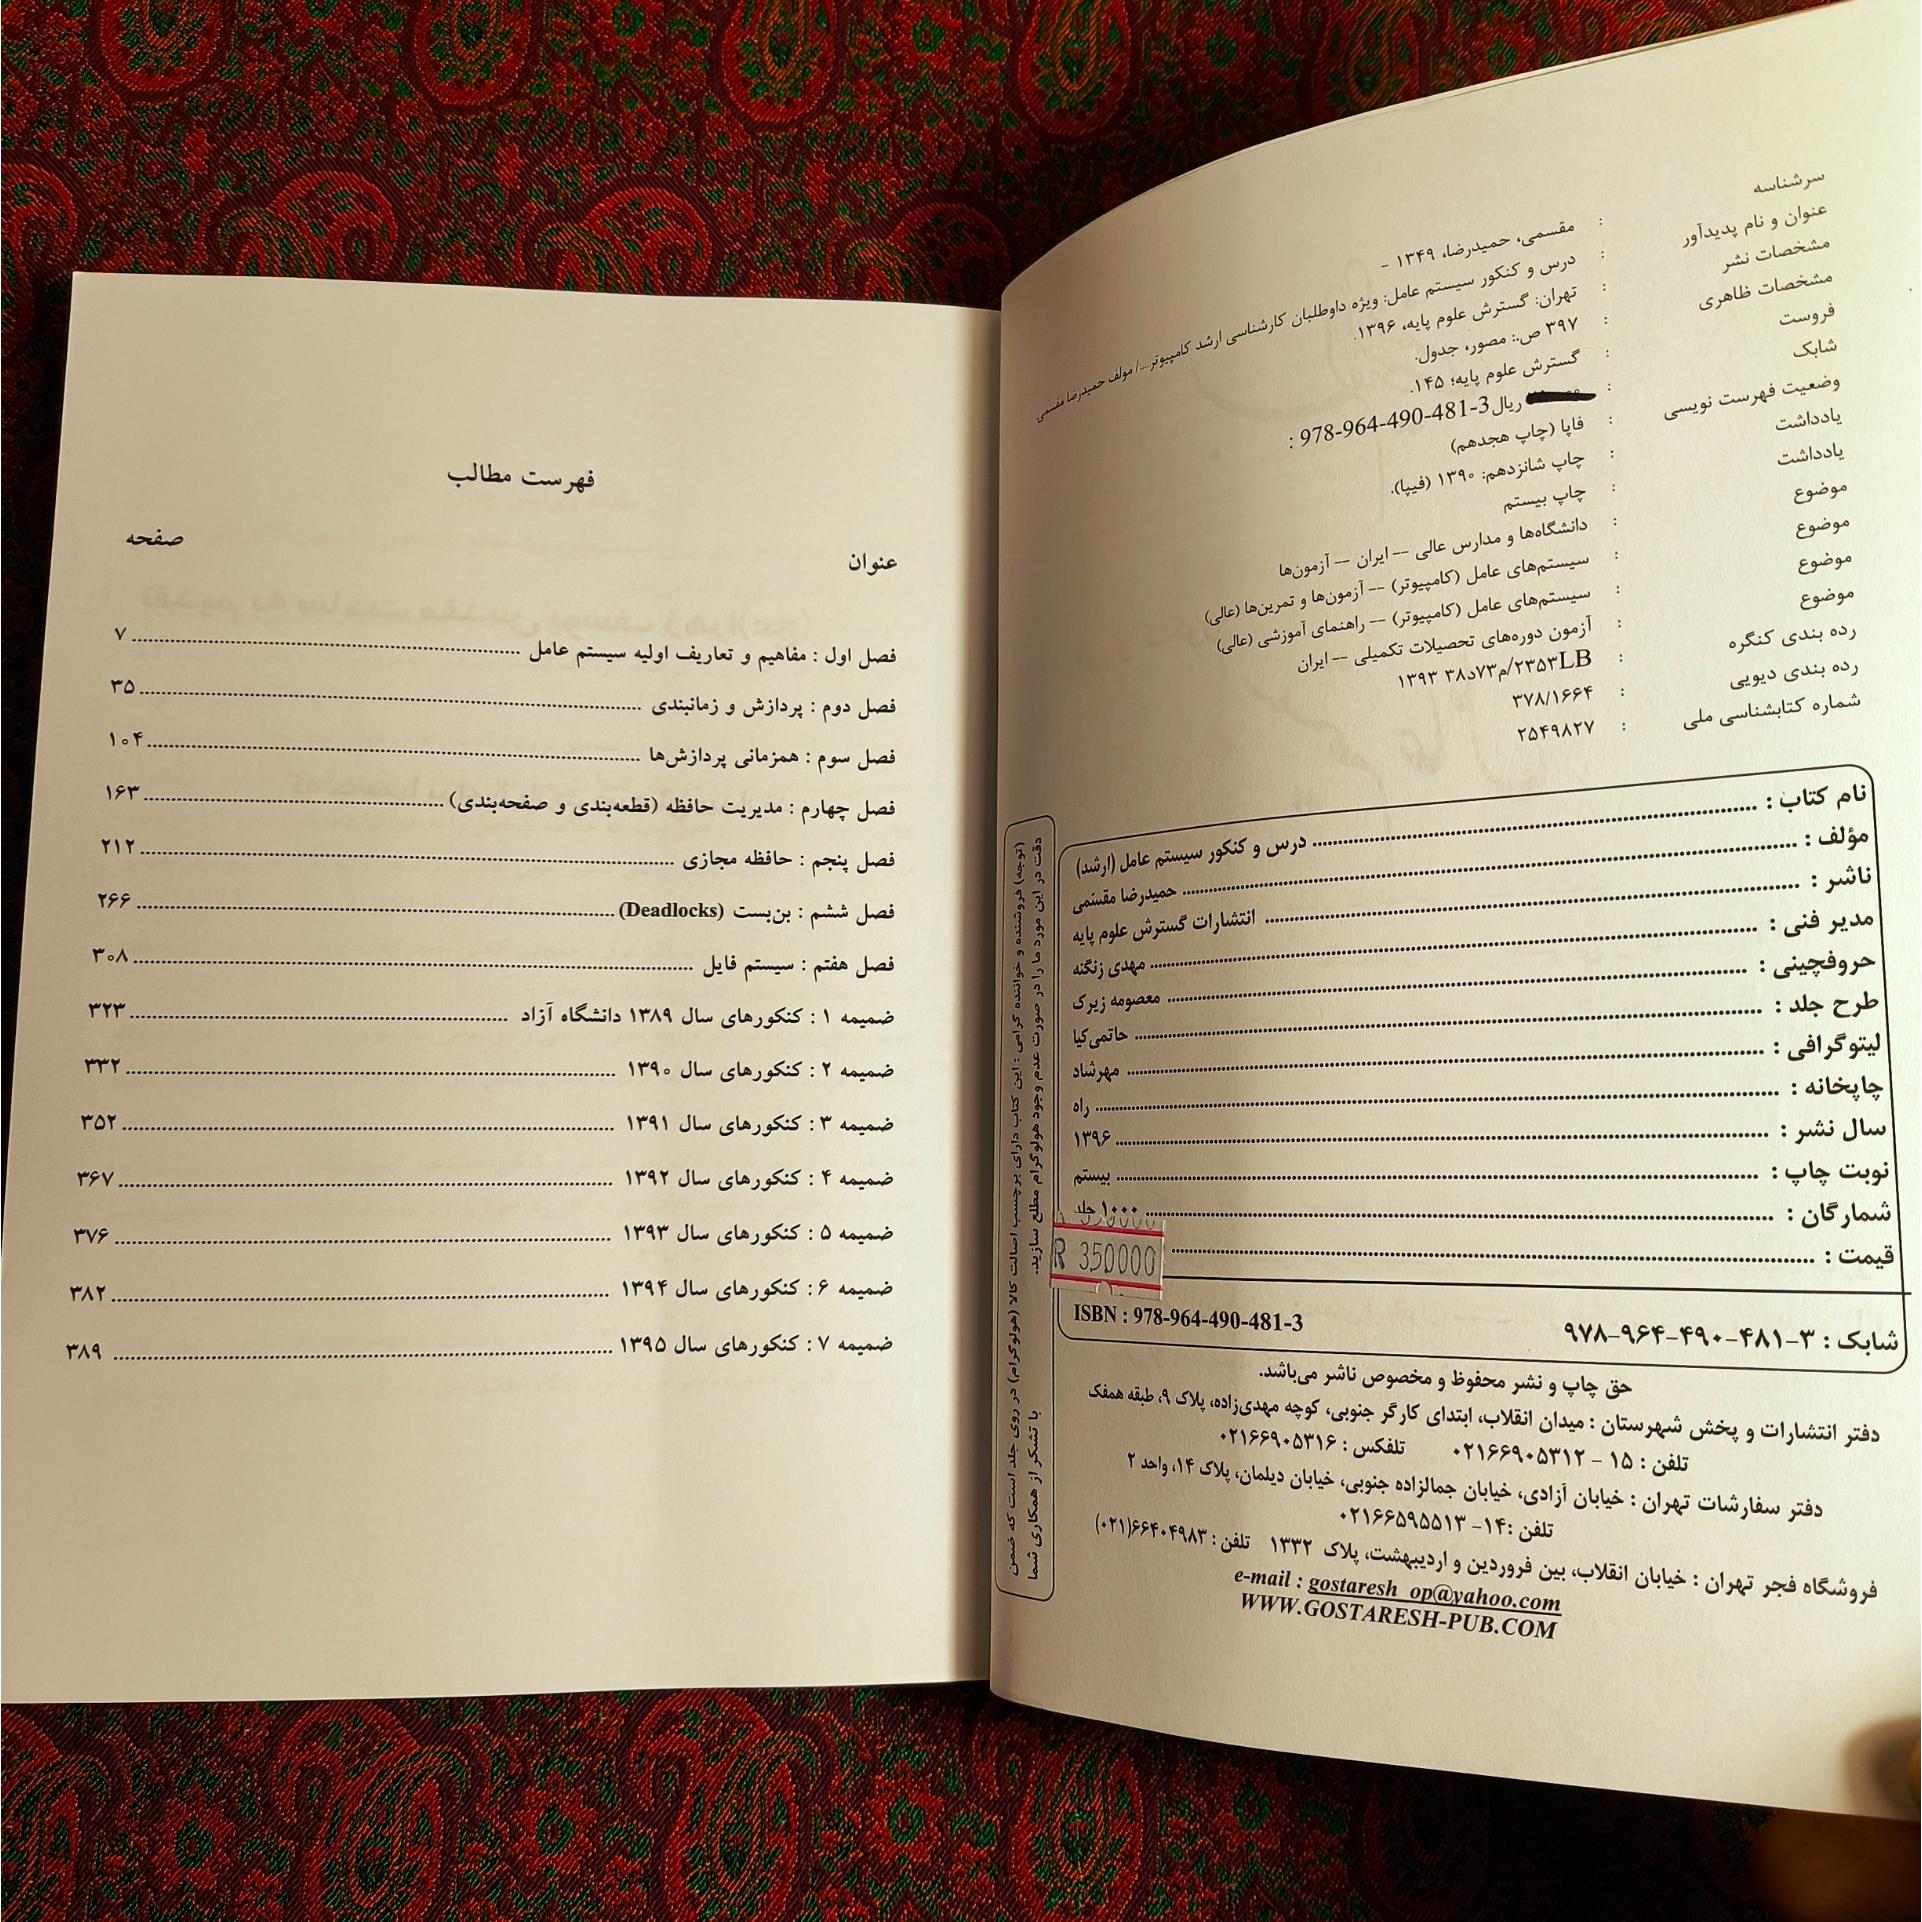 سرشناسه : مقسمی، حمیدرضا، ۱۳۴۹ -
عنوان و نام پدیدآور : درس و کنکور سیستم عامل: ویژه داوطلبان کارشناسی ارشد کامپیوتر.../ مولف حمیدرضا مقسمی
مشخصات نشر : تهران: گسترش علوم پایه، ۱۳۹۶.
مشخصات ظاهری : ۳۹۷ ص.: مصور، جدول.
فروست : گسترش علوم پایه؛ ۱۴۵.
شابک : ریال 978-964-490-481-3 :
وضعیت فهرست نویسی : فاپا (چاپ هجدهم)
یادداشت : چاپ شانزدهم: ۱۳۹۰ (فیپا).
یادداشت : چاپ بیستم
موضوع : دانشگاه‌ها و مدارس عالی -- ایران -- آزمون‌ها
موضوع : سیستم‌های عامل (کامپیوتر) -- آزمون‌ها و تمرین‌ها (عالی)
موضوع : سیستم‌های عامل (کامپیوتر) -- راهنمای آموزشی (عالی)
موضوع : آزمون دوره‌های تحصیلات تکمیلی -- ایران
رده بندی کنگره : ۲۳۵۳LB/م۷۳د۳۸ ۱۳۹۳
رده بندی دیویی : ۳۷۸/۱۶۶۴
شماره کتابشناسی ملی : ۲۵۴۹۸۲۷
نام کتاب : درس و کنکور سیستم عامل (ارشد)
مؤلف : حمیدرضا مقسمی
ناشر : انتشارات گسترش علوم پایه
مدیر فنی : مهدی زنگنه
حروفچینی : معصومه زیرک
طرح جلد : حاتمی‌کیا
لیتوگرافی : مهرشاد
چاپخانه : راه
سال نشر : ۱۳۹۶
نوبت چاپ : بیستم
شمارگان : ۱۰۰۰ جلد
قیمت : R 350000
شابک : ۹۷۸-۹۶۴-۴۹۰-۴۸۱-۳ ISBN : 978-964-490-481-3
(توجه) فروشنده و خواننده گرامی : این کتاب دارای برچسب اصالت کالا (هولوگرام) در روی جلد است که ضمن
دقت در این مورد ما را در صورت عدم وجود هولوگرام مطلع سازید. با تشکر از همکاری شما
حق چاپ و نشر محفوظ و مخصوص ناشر می‌باشد.
دفتر انتشارات و پخش شهرستان : میدان انقلاب، ابتدای کارگر جنوبی، کوچه مهدی‌زاده، پلاک ۹، طبقه همفک
تلفن : ۱۵ - ۰۲۱۶۶۹۰۵۳۱۲ تلفکس : ۰۲۱۶۶۹۰۵۳۱۶
دفتر سفارشات تهران : خیابان آزادی، خیابان جمالزاده جنوبی، خیابان دیلمان، پلاک ۱۴، واحد ۲
تلفن :۱۴- ۰۲۱۶۶۵۹۵۵۱۳
فروشگاه فجر تهران : خیابان انقلاب، بین فروردین و اردیبهشت، پلاک ۱۳۳۲ تلفن : ۶۶۴۰۴۹۸۳(۰۲۱)
e-mail : gostaresh_op@yahoo.com
WWW.GOSTARESH-PUB.COM
فهرست مطالب
عنوان صفحه
فصل اول : مفاهیم و تعاریف اولیه سیستم عامل ۷
فصل دوم : پردازش و زمانبندی ۳۵
فصل سوم : همزمانی پردازش‌ها ۱۰۴
فصل چهارم : مدیریت حافظه (قطعه‌بندی و صفحه‌بندی) ۱۶۳
فصل پنجم : حافظه مجازی ۲۱۲
فصل ششم : بن‌بست (Deadlocks) ۲۶۶
فصل هفتم : سیستم فایل ۳۰۸
ضمیمه ۱ : کنکورهای سال ۱۳۸۹ دانشگاه آزاد ۳۲۳
ضمیمه ۲ : کنکورهای سال ۱۳۹۰ ۳۳۲
ضمیمه ۳ : کنکورهای سال ۱۳۹۱ ۳۵۲
ضمیمه ۴ : کنکورهای سال ۱۳۹۲ ۳۶۷
ضمیمه ۵ : کنکورهای سال ۱۳۹۳ ۳۷۶
ضمیمه ۶ : کنکورهای سال ۱۳۹۴ ۳۸۲
ضمیمه ۷ : کنکورهای سال ۱۳۹۵ ۳۸۹